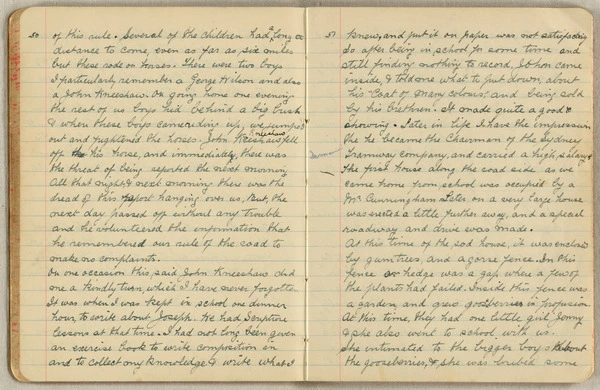 50
of this rule. Several of the children had a long
distance to come, even as far as six miles
but these rode on horses. There were two boys
I particularly remember a George Hilson and also
a John Kneeshaw. On going home one evening
the rest of us boys hid behind a big bush
& when these boys came riding up, we jumped
out and frightened the horses. John Kneeshaw fell
off his horse, and immediately there was
the threat of being reported the next morning
All that night & next morning there was the
dread of this report hanging over us, But the
next day passed off without any trouble
and he volunteered the information that
he remembered our rule of the road to
make no complaints.
On one occasion this said John Kneeshaw did
me a kindly turn, which I have never forgotten
It was when I was kept in school one dinner
hour to write about Joseph. We had Scripture
lessons at that time. I had not long been given
an exercise book to write composition in
and to collect my knowledge & write what I
51
knew, and put it on paper was not satisfactory
So after being in school for some time and
still finding nothing to record, John came
inside & told me what to put down, about
his "Coat of many colours", and being sold
by his Brethren. It made quite a good
showing. Later in life I have the impression
he became the Chairman of the Sydney
Tramway Company, and carried a high salary
The first house along the road side as we
came home from school was occupied by a
Mr Cunningham Later on a very large house
was erected a little further away, and a special
roadway and drive was made.
At this time of the sod house, it was enclosed
by gumtrees, and a gorse fence. In this
fence or hedge was a gap where a few of
the plants had failed. Inside this fence was
a garden, and grew gooseberries in profusion
At this time, they had one little girl Jenny
& she also went to school with us.
She intimated to the bigger boys about
the gooseberries, & she was bribed some